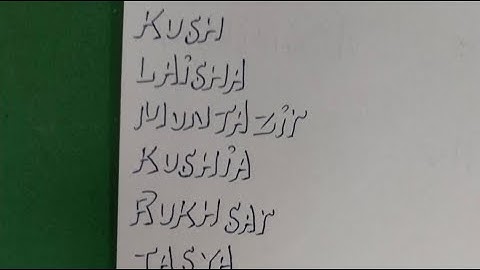 KUSH
LAiSHA
MUNTAZir
KUSHiA
RUKHSAr
TASYA